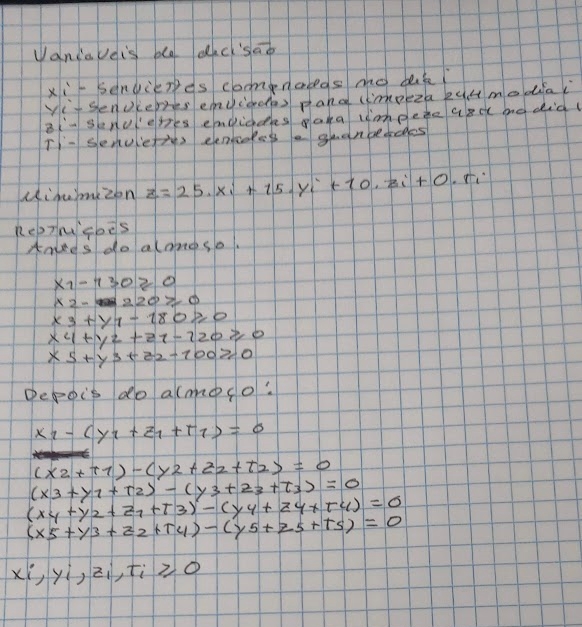 Variaveis de decisão
xi - servietes compradas no dia i
yi - serviettes enviadas para limpeza 24H no dia i
zi - serviettes enviadas para limpeza 48H no dia i
Ti - serviettes usadas e guardadas
Minimizar z = 25.xi + 15.yi + 10.zi + 0.Ti
Restrições
Antes do almoço:
x1 - 130 ≥ 0
x2 - 220 ≥ 0
x3 + y1 - 180 ≥ 0
x4 + y2 + z1 - 120 ≥ 0
x5 + y3 + z2 - 100 ≥ 0
Depois do almoço:
x1 - (y1 + z1 + T1) = 0
(x2 + T1) - (y2 + z2 + T2) = 0
(x3 + y1 + T2) - (y3 + z3 + T3) = 0
(x4 + y2 + z1 + T3) - (y4 + z4 + T4) = 0
(x5 + y3 + z2 + T4) - (y5 + z5 + T5) = 0
xi, yi, zi, Ti ≥ 0